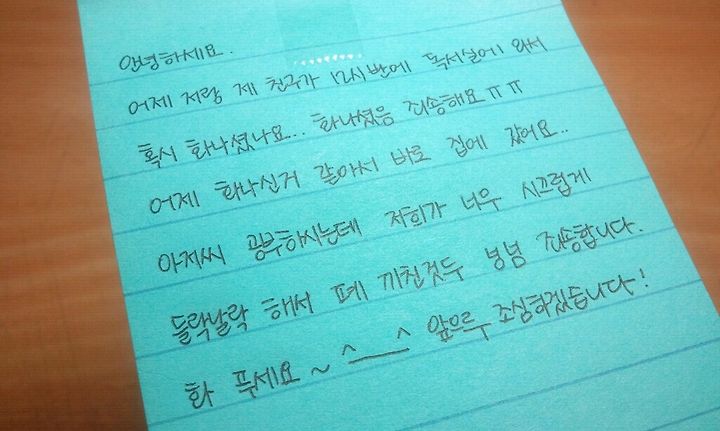 안녕하세요.
어제 저랑 제 친구가 12시반에 독서실에 와서
혹시 화나셨나요... 화나셨음 죄송해요ㅠㅠ
어제 화나신거 같아서 바로 집에 갔어요..
아저씨 공부하시는데 저희가 너무 시끄럽게
들락날락 해서 페 끼친것두 넝넘 죄송합니다.
화 푸세요~^__^ 앞으루 조심하겠습니다!